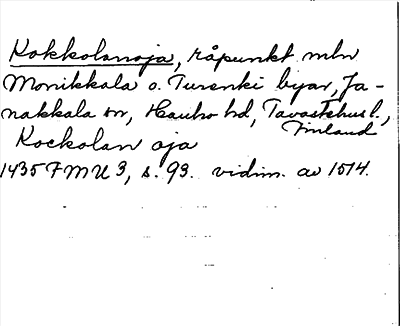 Kokkolanoja, råpunkt mln
Monikkala o. Turenki byar, Ja-
nakkala sn, Hauho hd, Tavastehus l.,
Finland
Kockolan oja
1435 FMU 3, s. 93. vidim. av 1514.